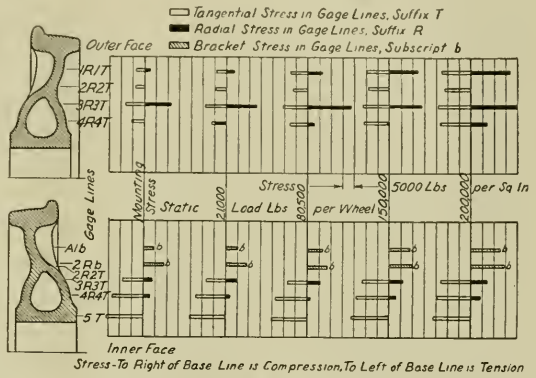 Tangential Stress in Gage Lines, Suffix T
Radial Stress in Gage Lines, Suffix R
Bracket Stress in Gage Lines, Subscript b
Outer Face
1R1T
2R2T
3R3T
4R4T
Gage Lines
Mounting Stress
Static
21000
Load Lbs
80,500
per Wheel
150,000
200,000
Stress
5000 Lbs
per Sq In
A1b
2Rb
2R2T
3R3T
4R4T
5T
b b b b b
b b b b b
Inner Face
Stress-To Right of Base Line is Compression, To Left of Base Line is Tension